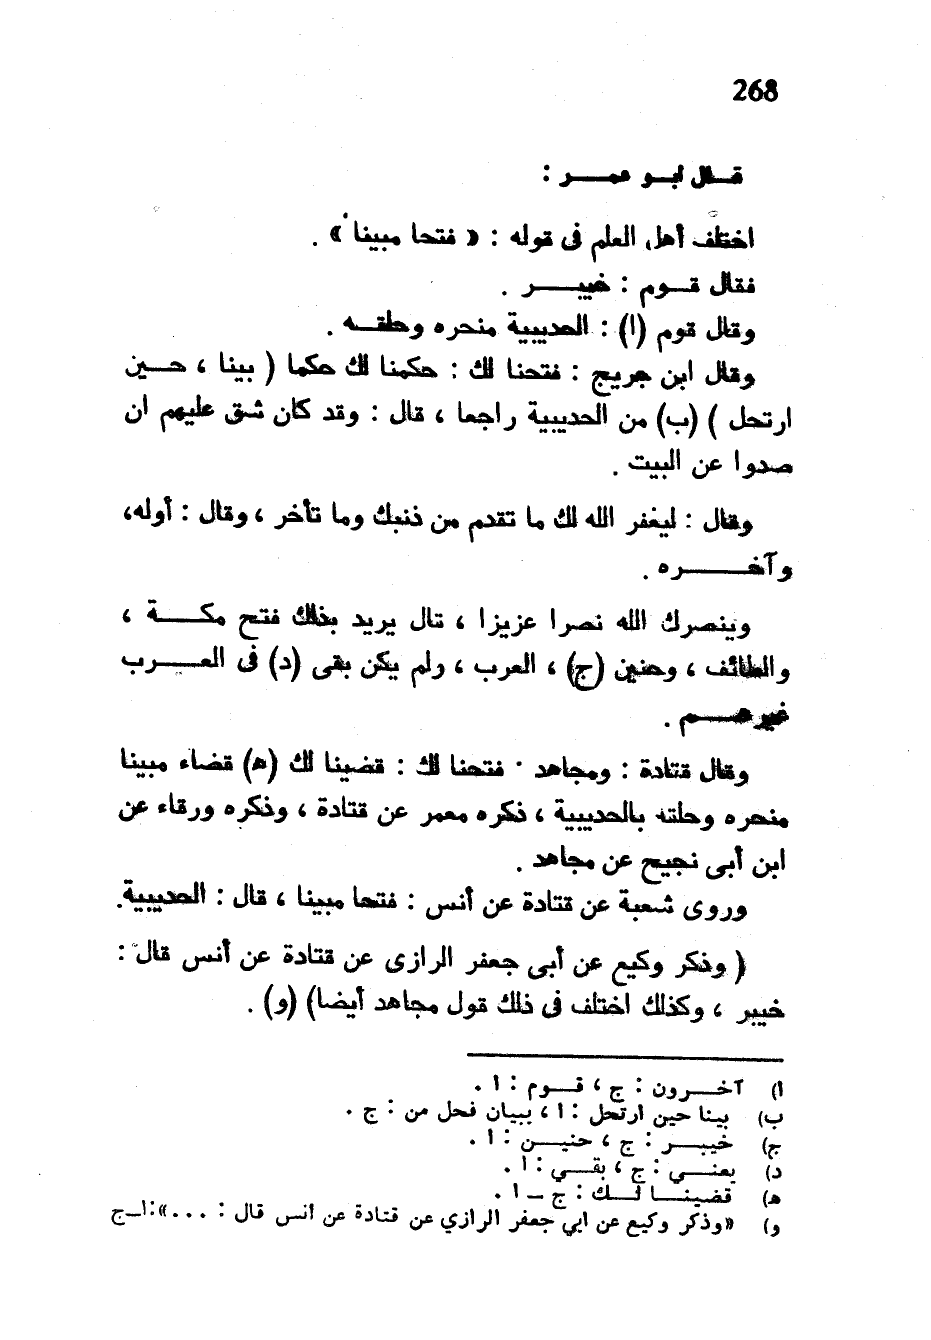 268
قال ابو عمر :
اختلف أهل العلم فى قوله : « فتحا مبينا » .
فقال قوم : خيبر .
وقال قوم (ا) : الحديبية منحره وحلقه .
وقال ابن جريج : فتحنا لك : حكمنا لك حكما ( بينا ، حين
ارتحل ) (ب) من الحديبية راجعا ، قال : وقد كان شق عليهم ان
صدوا عن البيت .
وقال : ليغفر الله لك ما تقدم من ذنبك وما تأخر ، وقال : أوله،
وآخره .
وينصرك الله نصرا عزيزا ، قال يريد بذلك فتح مكة ،
والطائف ، وحنين (ج) ، العرب ، ولم يكن بقى (د) فى العرب
غيرهم .
وقال قتادة : ومجاهد · فتحنا لك : قضينا لك (ه) قضاء مبينا
منحره وحلته بالحديبية ، ذكره معمر عن قتادة ، وذكره ورقاء عن
ابن أبى نجيح عن مجاهد .
وروى شعبة عن قتادة عن أنس : فتحا مبينا ، قال : الحديبية.
( وذكر وكيع عن أبى جعفر الرازى عن قتادة عن أنس قال :
خيبر ، وكذلك اختلف فى ذلك قول مجاهد أيضا) (و) .
ا) آخرون : ج ، قوم : ا .
ب) بينا حين ارتحل : ا ، ببيان فحل من : ج .
ج) خيبر : ج ، حنين : ا .
د) يعني : ج ، بقي : ا .
ه) قضينا لك : ج ـ ا .
و) «وذكر وكيع عن ابي جعفر الرازي عن قتادة عن انس قال : ...»:ا ـ ج